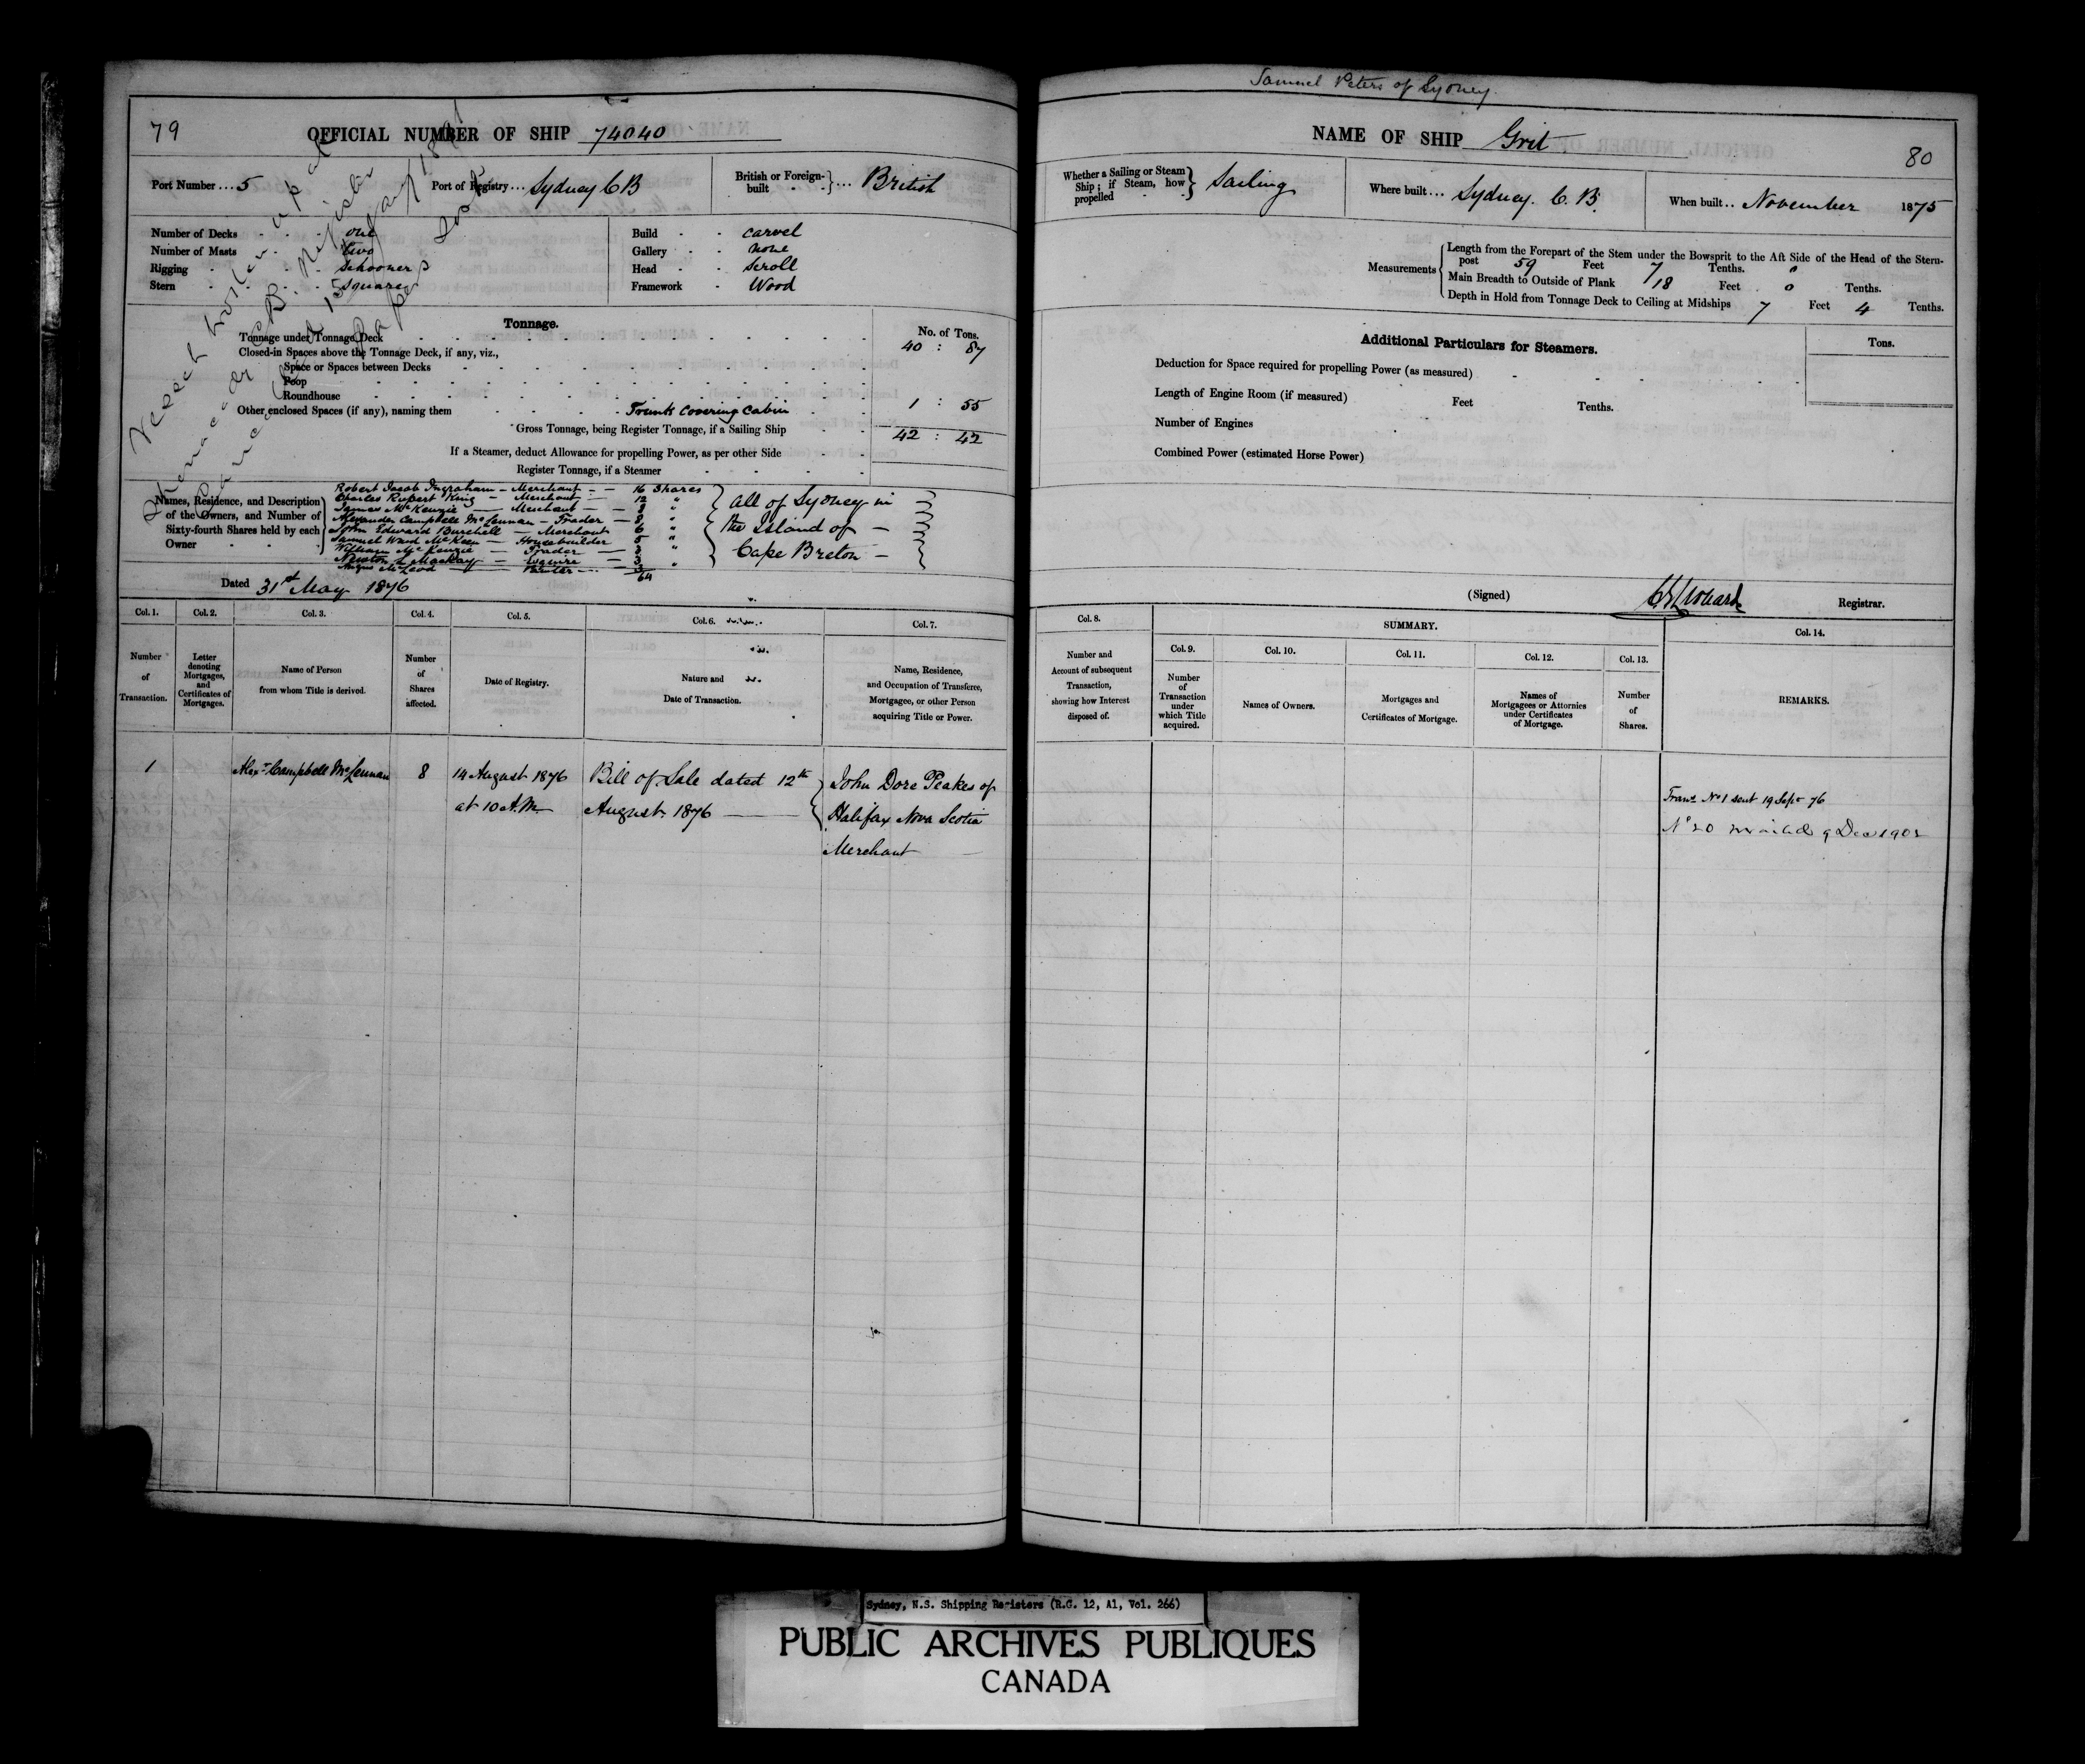 79
OFFICIAL NUMBER OF SHIP 74040
Port Number ... 5 Port of Registry ... Sydney C B British or Foreign-built } ... British
Number of Decks one Build carvel
Number of Masts two Gallery none
Rigging Schooner Head Scroll
Stern Square Framework Wood
Tonnage. No. of Tons.
Tonnage under Tonnage Deck 40 : 87
Closed-in Spaces above the Tonnage Deck, if any, viz.,
Space or Spaces between Decks
Poop
Roundhouse
Other enclosed Spaces (if any), naming them Trunk covering cabin 1 : 55
Gross Tonnage, being Register Tonnage, if a Sailing Ship 42 : 42
If a Steamer, deduct Allowance for propelling Power, as per other Side
Register Tonnage, if a Steamer
Vessel broken up at
Register
Papers lost
Names, Residence, and Description of the Owners, and Number of Sixty-fourth Shares held by each Owner
Robert Jacob Ingraham – Merchant – 16 Shares
Charles Rupert King – Merchant – 12 "
James McKenzie – Merchant – 8 "
Alexander Campbell McLennan – Trader – 8 "
John Edward Burchell – Merchant 6 "
Samuel Ward McKeen – Housebuilder 5 "
William McKenzie – Trader – 3 "
Newton L Mackay – Esquire – 3
Angus McLeod – 3 "
64
All of Sydney in
the Island of –
Cape Breton –
Dated 31st May 1876
Col. 1. Col. 2. Col. 3. Col. 4. Col. 5. Col. 6. Col. 7.
Number of Transaction.
Letter denoting Mortgages, and Certificates of Mortgages.
Name of Person from whom Title is derived.
Number of Shares affected.
Date of Registry.
Nature and Date of Transaction.
Name, Residence, and Occupation of Transferee, Mortgagee, or other Person acquiring Title or Power.
1 Alexr Campbell McLennan 8 14 August 1876 Bill of Sale dated 12th John Dore Peakes of
at 10 A.M. August 1876 Halifax Nova Scotia
Merchant
Samuel Peters of Sydney
NAME OF SHIP Grit
80
Whether a Sailing or Steam Ship; if Steam, how propelled } Sailing Where built ... Sydney. C. B. When built .. November 1875
Measurements
Length from the Forepart of the Stem under the Bowsprit to the Aft Side of the Head of the Stern-
post 59 Feet 7 Tenths.
Main Breadth to Outside of Plank 18 Feet 0 Tenths.
Depth in Hold from Tonnage Deck to Ceiling at Midships 7 Feet 4 Tenths.
Additional Particulars for Steamers. Tons.
Deduction for Space required for propelling Power (as measured)
Length of Engine Room (if measured) Feet Tenths.
Number of Engines
Combined Power (estimated Horse Power)
(Signed) Registrar.
Col. 8. SUMMARY. Col. 14.
Col. 9. Col. 10. Col. 11. Col. 12. Col. 13.
Number and Account of subsequent Transaction, showing how Interest disposed of.
Number of Transaction under which Title acquired.
Names of Owners.
Mortgages and Certificates of Mortgage.
Names of Mortgagees or Attornies under Certificates of Mortgage.
Number of Shares.
REMARKS.
Trans No 1 sent 19 Sept 76
No 20 mailed 9 Dec 1902
Sydney, N.S. Shipping Registers (R.G. 12, A1, Vol. 266)
PUBLIC ARCHIVES PUBLIQUES
CANADA